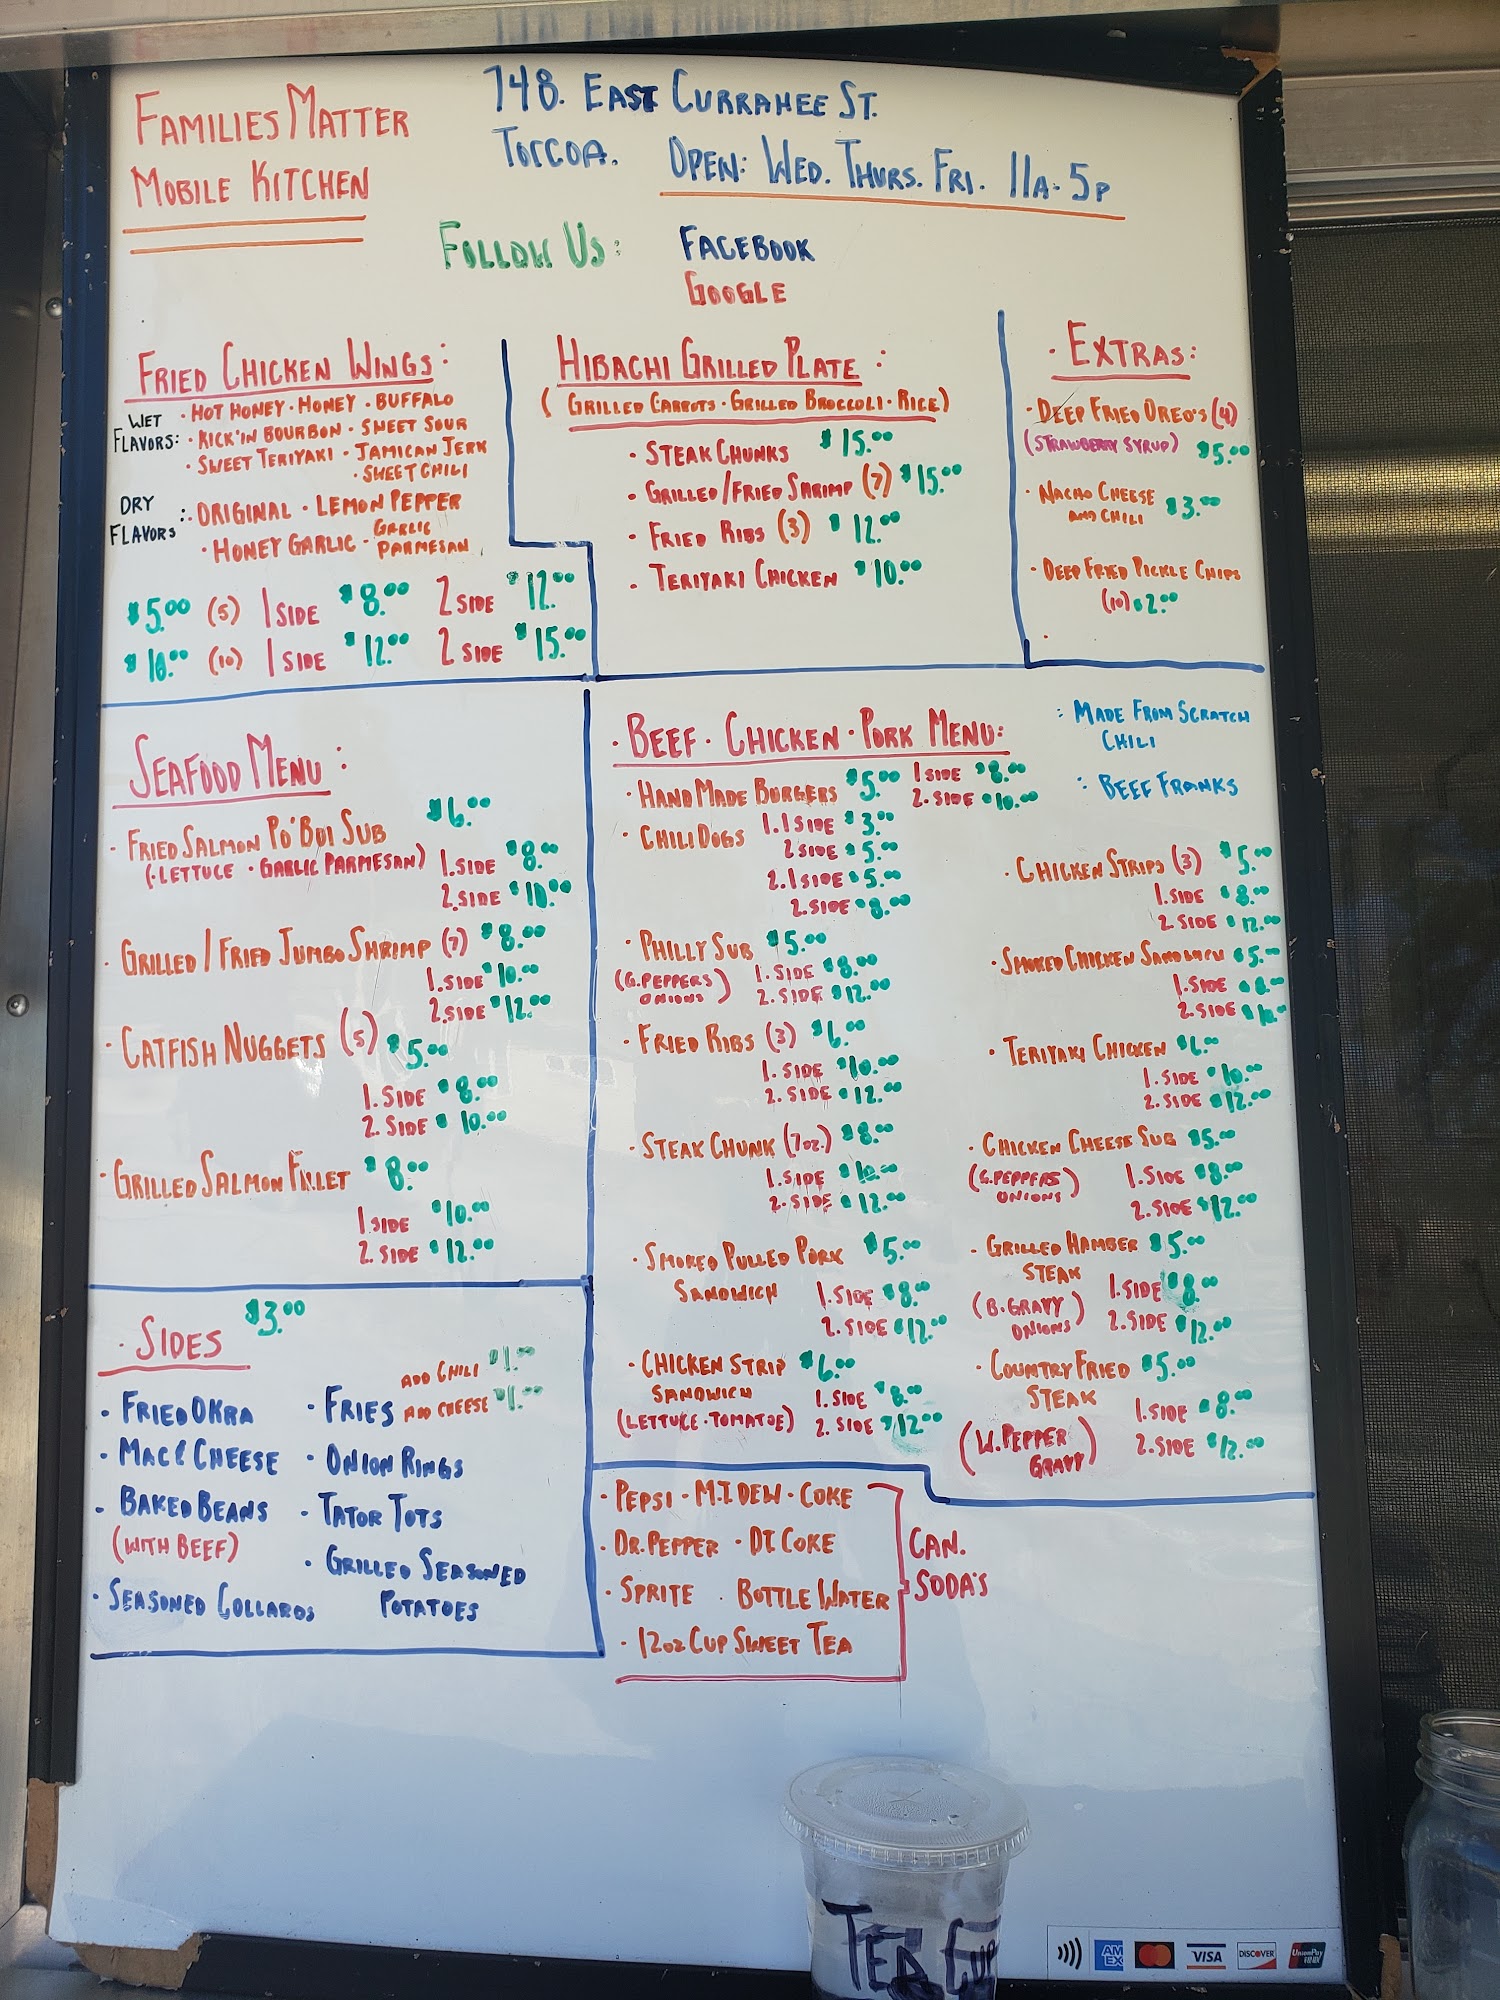 FAMILIES MATTER
MOBILE KITCHEN
748. EAST CURRAHEE ST.
TOCCOA. OPEN: WED. THURS. FRI. 11A-5P
FOLLOW US: FACEBOOK
GOOGLE
FRIED CHICKEN WINGS:
WET FLAVORS: · HOT HONEY · HONEY · BUFFALO
· KICK'IN BOURBON · SWEET SOUR
· SWEET TERIYAKI · JAMICAN JERK
· SWEET CHILI
DRY FLAVORS: · ORIGINAL · LEMON PEPPER
· HONEY GARLIC · GARLIC PARMESAN
$5.00 (5) 1 SIDE $8.00 2 SIDE $12.00
$10.00 (10) 1 SIDE $12.00 2 SIDE $15.00
HIBACHI GRILLED PLATE :
( GRILLED CARROTS · GRILLED BROCCOLI · RICE)
· STEAK CHUNKS $15.00
· GRILLED/FRIED SHRIMP (7) $15.00
· FRIED RIBS (3) $12.00
· TERIYAKI CHICKEN $10.00
· EXTRAS:
· DEEP FRIED OREO'S (4)
(STRAWBERRY SYRUP) $5.00
· NACHO CHEESE
AND CHILI $3.00
· DEEP FRIED PICKLE CHIPS
(10) $2.00
SEAFOOD MENU :
· FRIED SALMON PO'BOI SUB $6.00
(· LETTUCE · GARLIC PARMESAN) 1. SIDE $8.00
2. SIDE $10.00
· GRILLED / FRIED JUMBO SHRIMP (7) $8.00
1. SIDE $10.00
2. SIDE $12.00
· CATFISH NUGGETS (5) $5.00
1. SIDE $8.00
2. SIDE $10.00
· GRILLED SALMON FILLET $8.00
1 SIDE $10.00
2. SIDE $12.00
· BEEF · CHICKEN · PORK MENU:
: MADE FROM SCRATCH
CHILI
: BEEF FRANKS
· HAND MADE BURGERS $5.00 1 SIDE $8.00
2. SIDE $10.00
· CHILI DOGS 1. 1 SIDE $3.00
2 SIDE $5.00
2. 1 SIDE $5.00
2. SIDE $8.00
· PHILLY SUB $5.00
(G. PEPPERS ONIONS) 1. SIDE $8.00
2. SIDE $12.00
· FRIED RIBS (3) $6.00
1. SIDE $10.00
2. SIDE $12.00
· STEAK CHUNK (7oz.) $8.00
1. SIDE $10.00
2. SIDE $12.00
· SMOKED PULLED PORK $5.00
SANDWICH 1. SIDE $8.00
2. SIDE $12.00
· CHICKEN STRIP $6.00
SANDWICH 1. SIDE $8.00
(LETTUCE · TOMATOE) 2. SIDE $12.00
· CHICKEN STRIPS (3) $5.00
1. SIDE $8.00
2. SIDE $12.00
· SMOKED CHICKEN SANDWICH $5.00
1. SIDE $8.00
2. SIDE
· TERIYAKI CHICKEN $6.00
1. SIDE $10.00
2. SIDE $12.00
· CHICKEN CHEESE SUB $5.00
(G. PEPPERS ONIONS) 1. SIDE $8.00
2. SIDE $12.00
· GRILLED HAMBER $5.00
STEAK
(B. GRAVY ONIONS) 1. SIDE $8.00
2. SIDE $12.00
· COUNTRY FRIED $5.00
STEAK 1. SIDE $8.00
(W. PEPPER GRAVY) 2. SIDE $12.00
· SIDES $3.00
· FRIED OKRA
· MAC & CHEESE
· BAKED BEANS
(WITH BEEF)
· SEASONED COLLARDS
· FRIES ADD CHILI $1.00
ADD CHEESE $1.00
· ONION RINGS
· TATOR TOTS
· GRILLED SEASONED
POTATOES
· PEPSI · MT. DEW · COKE
· DR. PEPPER · DT. COKE
· SPRITE · BOTTLE WATER
· 12oz CUP SWEET TEA
CAN.
SODA'S
TEA CUP
AMEX VISA DISCOVER UnionPay